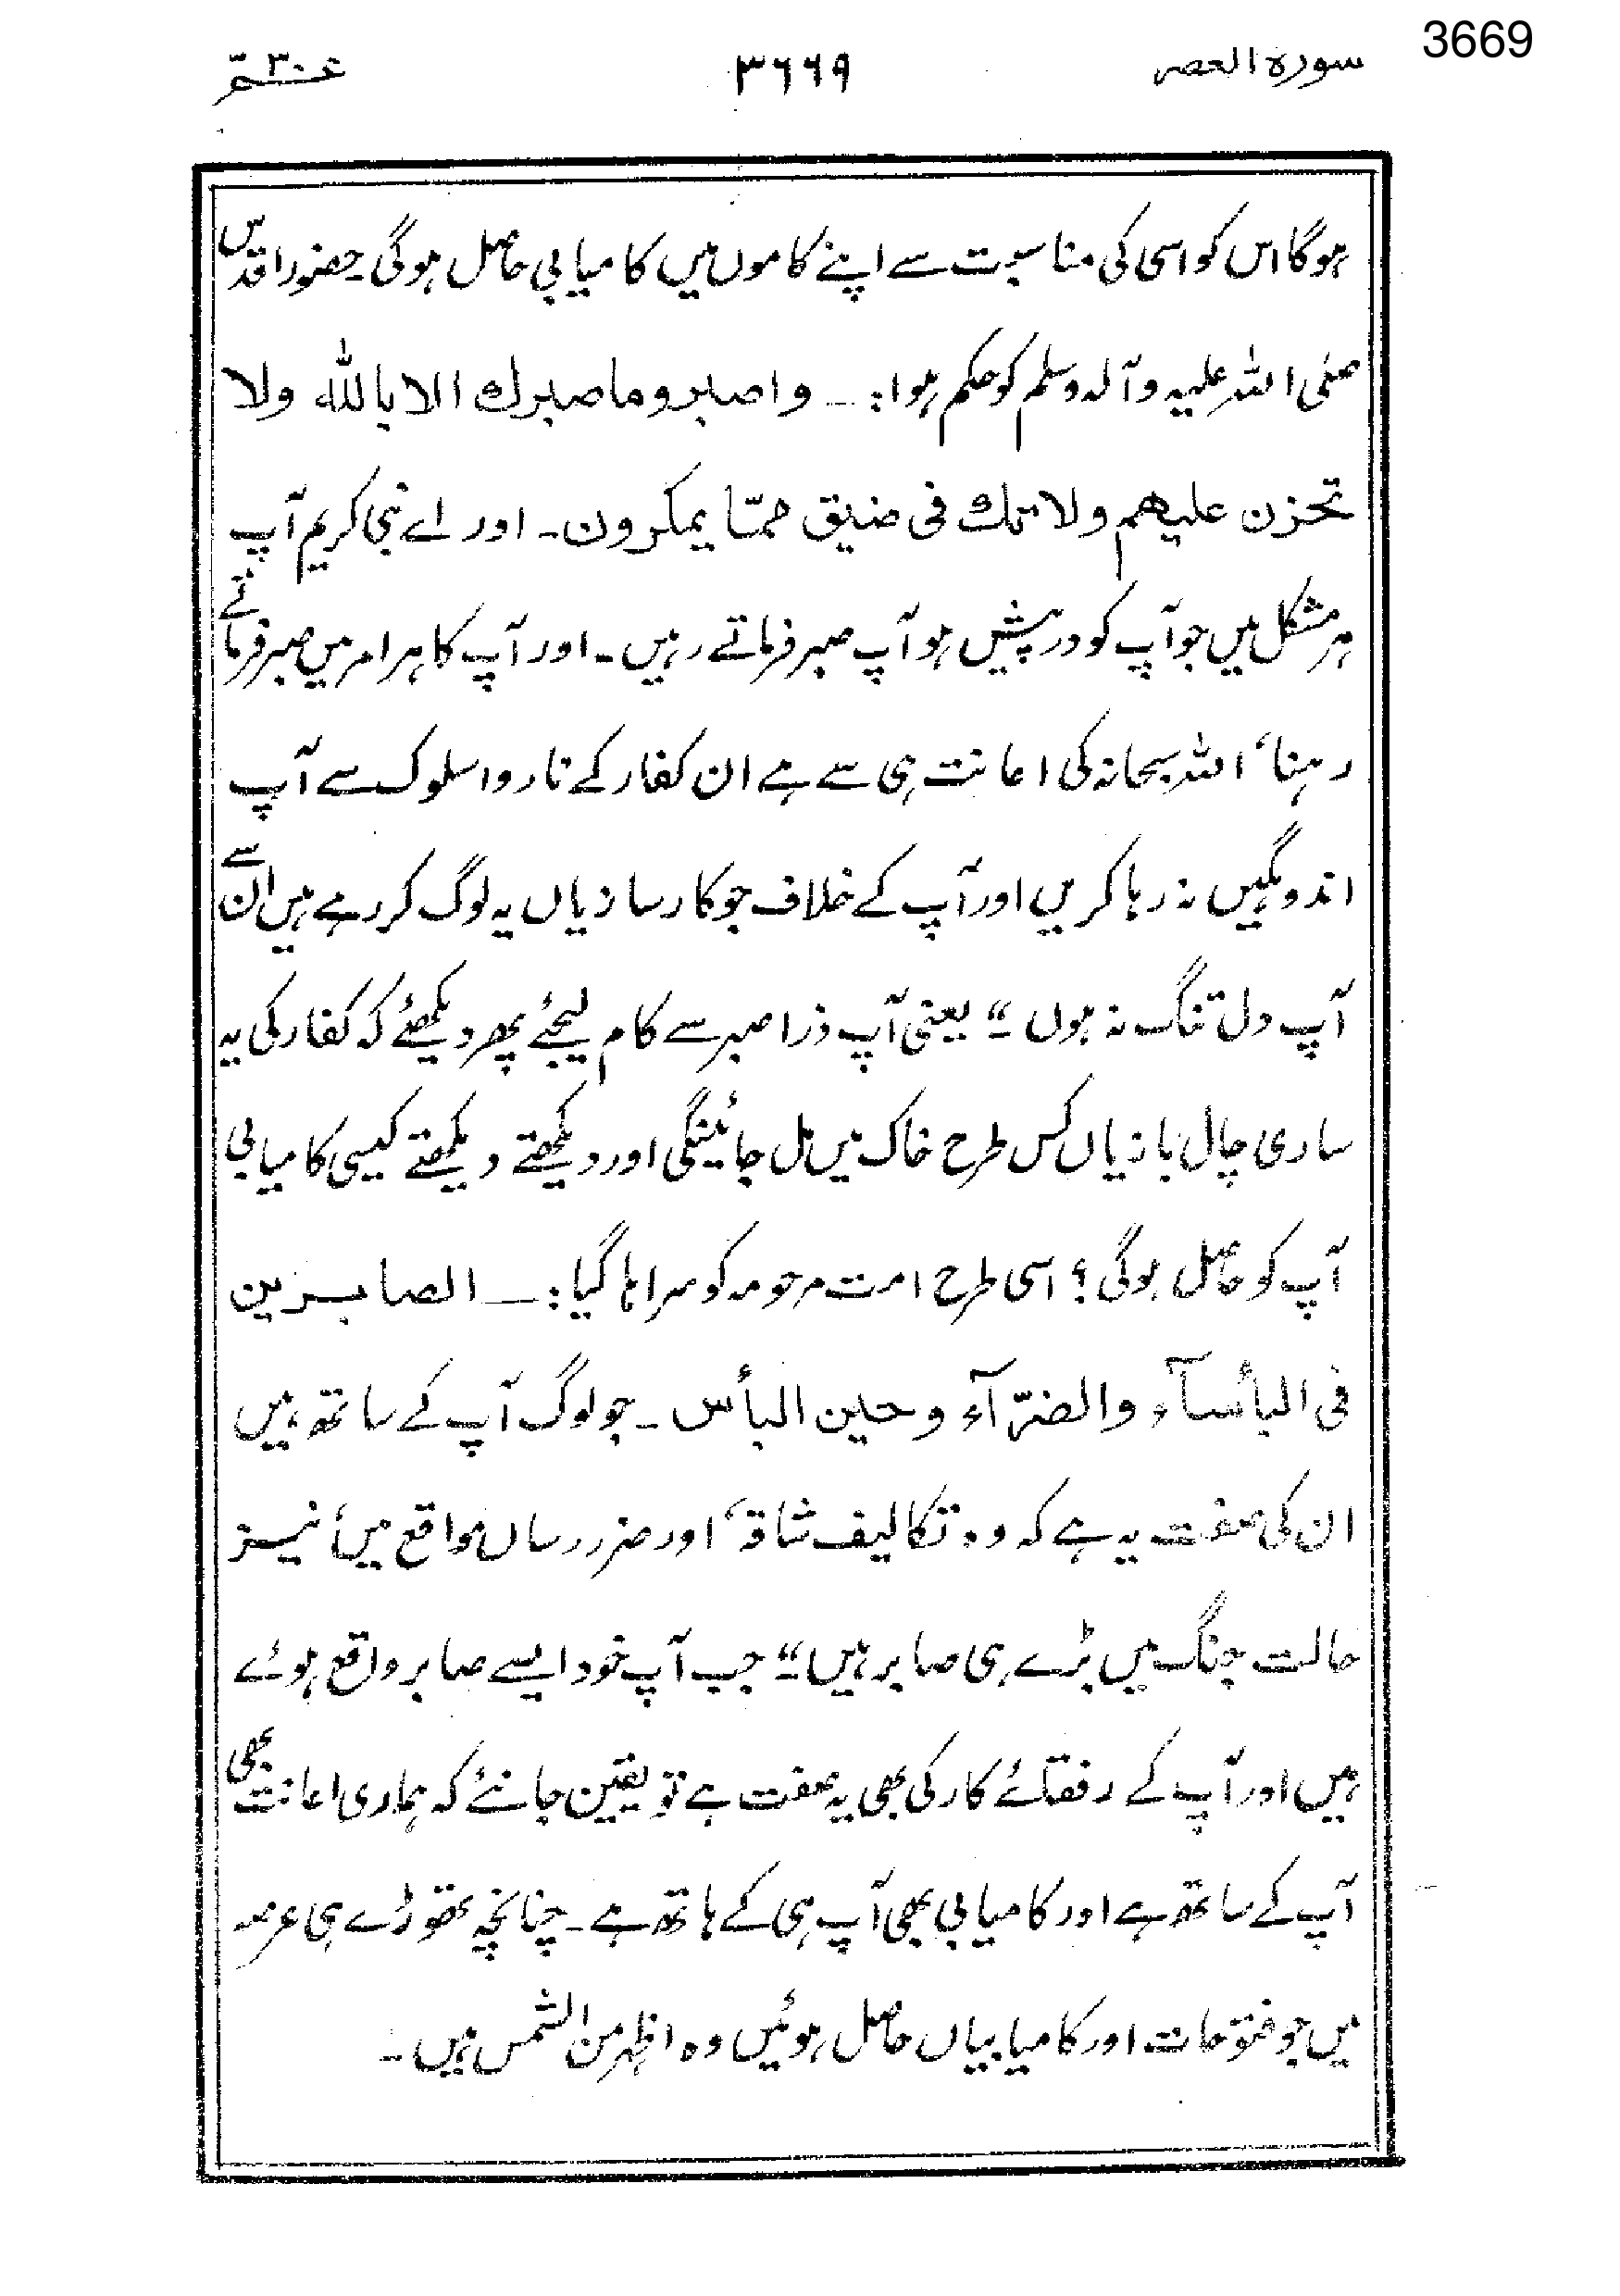 3669
سورۃ العصر ۳۶۶۹ عم ۳۰
ہوگا اس کو اسی کی مناسبت سے اپنے کاموں میں کامیابی حاصل ہوگی۔ حضور اقدس
صلی اللہ علیہ وآلہ وسلم کو حکم ہوا:۔ واصبر وما صبرك الا باللہ ولا
تحزن علیھم ولا تك فی ضیق ممّا یمکرون۔ اور اے نبی کریم آپ
ہر مشکل میں جو آپ کو درپیش ہو آپ صبر فرماتے رہیں۔ اور آپ کا ہر امر میں صبر فرماتے
رہنا، اللہ سبحانہ کی اعانت ہی سے ہے ان کفار کے ناروا سلوک سے آپ
اندوہگیں نہ رہا کریں اور آپ کے خلاف جو کارسازیاں یہ لوگ کر رہے ہیں ان سے
آپ دل تنگ نہ ہوں۔“ یعنی آپ ذرا صبر سے کام لیجئے پھر دیکھئے کہ کفار کی یہ
ساری چال بازیاں کس طرح خاک میں مل جائینگی اور دیکھتے دیکھتے کیسی کامیابی
آپ کو حاصل ہوگی؟ اسی طرح امت مرحومہ کو سراہا گیا:۔ الصابرین
فی البأسآء والضرّآء وحین البأس۔ جو لوگ آپ کے ساتھ ہیں
ان کی صفت یہ ہے کہ وہ تکالیف شاقہ، اور ضرر رساں مواقع میں، نیز
حالت جنگ میں بڑے ہی صابر ہیں۔“ جب آپ خود ایسے صابر واقع ہوئے
ہیں اور آپ کے رفقائے کار کی بھی یہ صفت ہے تو یقین جانئے کہ ہماری اعانت بھی
آپ کے ساتھ ہے اور کامیابی بھی آپ ہی کے ہاتھ ہے۔ چنانچہ تھوڑے ہی عرصہ
میں جو فتوحات اور کامیابیاں حاصل ہوئیں وہ اظہر من الشمس ہیں۔